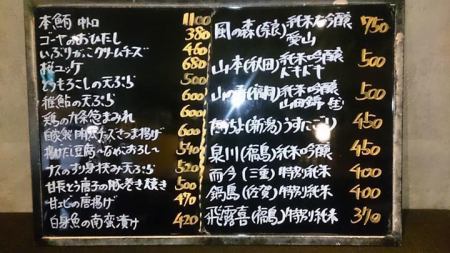 本鮪 中トロ 1100
ゴーヤのおひたし 380
いぶりがっこクリームチーズ 460
桜ユッケ 680
とうもろこしの天ぷら 500
稚鮎の天ぷら 600
鶏の九条葱まみれ 600
自家製 さつま揚げ
揚げだし豆腐〜なめこおろし 540
ナスのすり身挟み天ぷら 520
甘長とう唐子の豚巻き焼き 500
甘エビの唐揚げ 470
白身魚の南蛮漬け 420
風の森(奈良)純米吟醸 750
愛山
山本(秋田)純米吟醸 500
山の(福岡)純米吟醸 500
山田錦(生)
(新潟)うすにごり 450
泉川(福島)純米吟醸 450
而今(三重)特別純米 400
鍋島(佐賀)特別純米 400
飛露喜(福島)特別純米 370